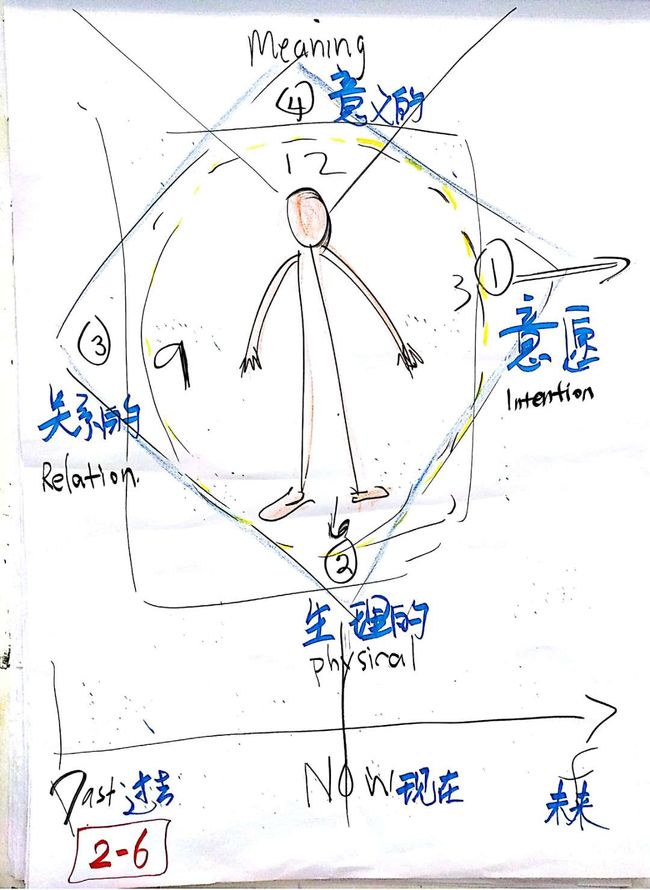 Meaning
④ 意义的
12
①
3
③
9
意愿
Intention
关系的
Relation.
6
②
生理的
physical
Past 过去
NOW 现在
f
未来
2-6